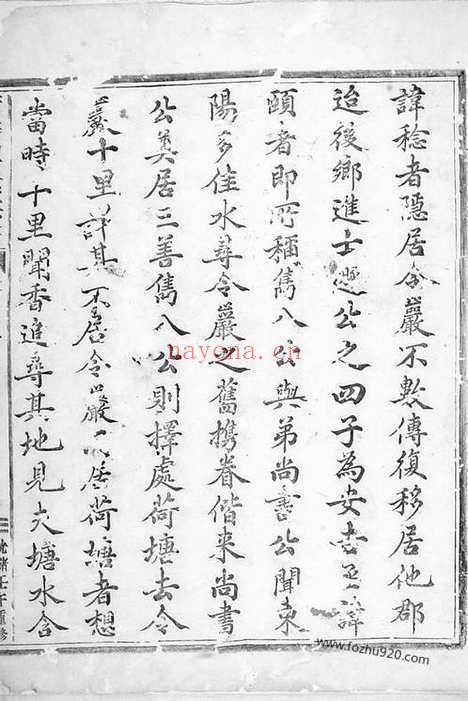 諱稔者隱居令巖不數傳復移居他郡
迨後鄉進士公之四子為安諱
頤者即所稱雋八公與弟尚書公聞東
陽多佳水尋令巖之舊携眷偕来尚書
公奠居三善雋八公則擇處荷塘去令
巖十里許其不居令巖居荷塘者想
當時十里聞香追尋其地見大塘水含
光緒壬午重修
nayona.cn
www.fozhu920.com